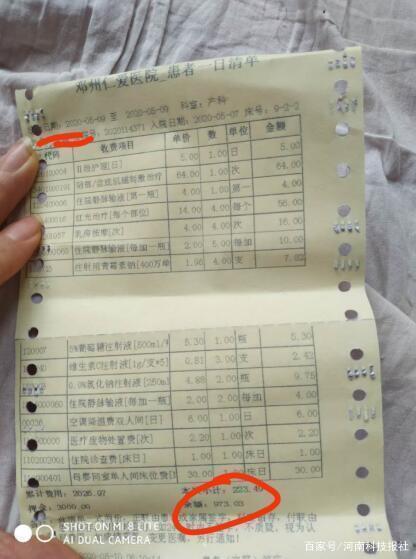 邓州仁爱医院 患者一日清单
日期: 2020-05-09 至 2020-05-09 科室: 产科
2020114371 入院日期: 2020-05-07 床号: 9-2-2
代码 收费项目 单价 数 单位 金额
II级护理[日] 5.00 1.00 日 5.00
64.00 1.00 次 64.00
住院静脉输液[第一瓶] 4.00 1.00 第一 4.00
红光治疗[每个部位] 14.00 4.00 每个 56.00
乳房按摩[次] 4.00 4.00 次 16.00
住院静脉输液[每加一瓶] 2.00 5.00 每加 10.00
注射用青霉素钠[400万单 1.96 4.00 支 7.82
5%葡萄糖注射液[500ml/ 5.30 1.00 瓶 5.30
维生素C注射液[1g/支*5] 0.81 3.00 支 2.42
0.9%氯化钠注射液[250ml 4.88 2.00 瓶 9.75
住院静脉输液[每加一瓶] 2.00 2.00 每加 4.00
空调降温费双人间[日] 6.00 1.00 日 6.00
医疗废物处置费[次] 2.20 1.00 次 2.20
住院诊查费[床日] 1.00 1.00 床日 1.00
母婴同室单人间床位费[ 30.00 1.00 床日 30.00
累计费用: 2026.97 小计: 223.49
押金: 3000.00 余额: 973.03
SHOT ON MI 8 LITE
AI DUAL CAMERA
百家号/河南科技报社